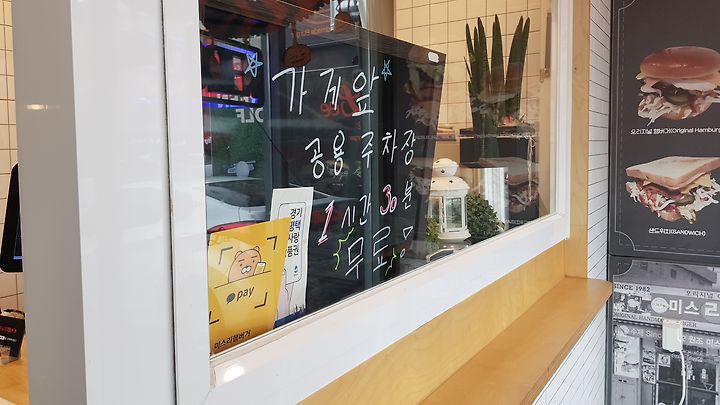 가게앞
공용주차장
1시간 30분
무료!
경기
평택
사랑
상품권
pay
미스리햄버거
오리지널 햄버거(Original Hamburg
샌드위치(SANDWICH)
SINCE 1982
오리지널
미스리
ORIGINAL HANDMADE BURGER